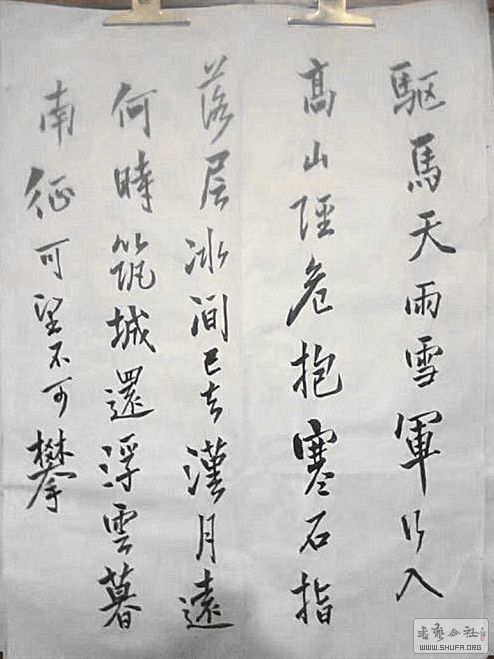 驅馬天雨雪軍行入
高山陘危抱寒石指
落层冰間已去漢月遠
何時筑城還浮雲暮
南征可望不可攀
書藝公社
WWW.SHUFA.ORG